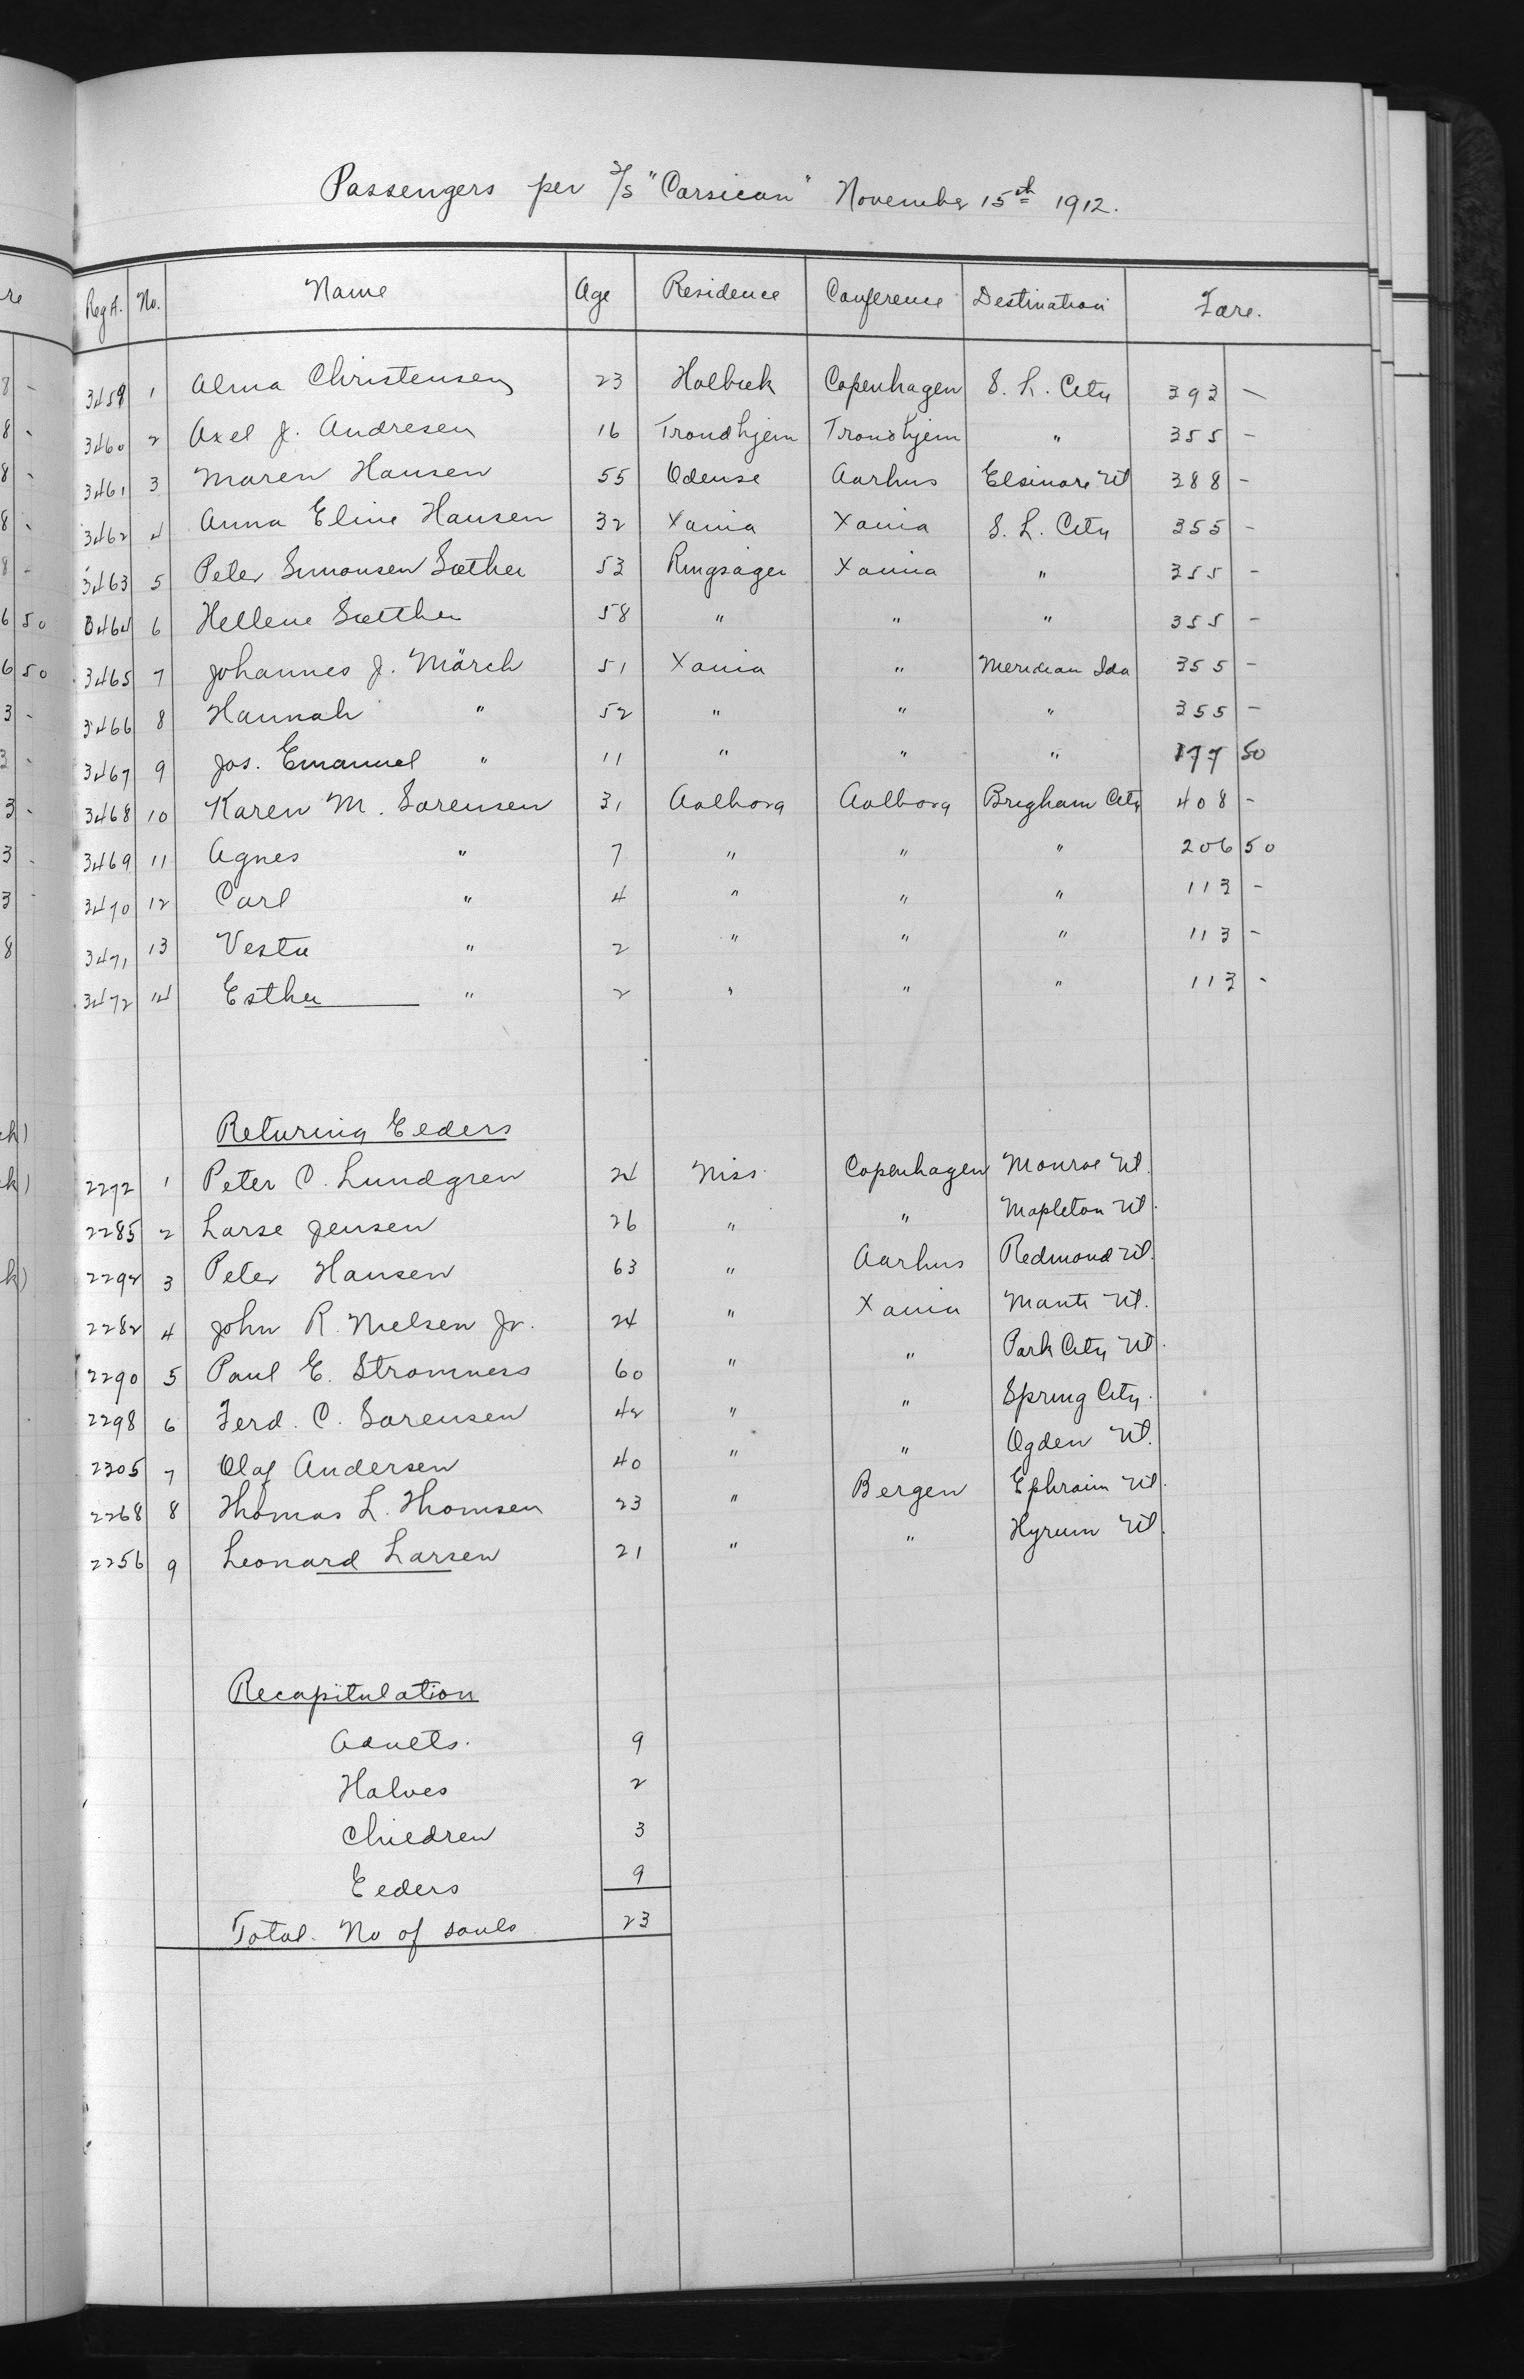 Passengers per S/S "Corsican" November 15th 1912.
Reg A. No. Name Age Residence Conference Destination Fare.
3459 1 Alma Christensen 23 Holbæk Copenhagen S. L. City 393 –
3460 2 Axel J. Andresen 16 Trondhjem Trondhjem " 355 –
3461 3 Maren Hansen 55 Odense Aarhus Elsinore Ut 388 –
3462 4 Anna Eline Hansen 32 Xania Xania S. L. City 355 –
3463 5 Peter Simonsen Sæther 53 Ringsager Xania " 355 –
3464 6 Hellene Sæther 58 " " " 355 –
3465 7 Johannes J. Märch 51 Xania " Meridian Ida 355 –
3466 8 Hannah " 52 " " " 355 –
3467 9 Jos. Emanuel " 11 " " " 177 50
3468 10 Karen M. Sorensen 31 Aalborg Aalborg Brigham City 408 –
3469 11 Agnes " 7 " " " 206 50
3470 12 Carl " 4 " " " 113 –
3471 13 Vesta " 2 " " " 113 –
3472 14 Esther " 2 " " " 113 –
Returing Elders
2272 1 Peter C. Lundgren 24 Miss. Copenhagen Monroe Ut.
2285 2 Larse Jensen 26 " " Mapleton Ut.
2292 3 Peter Hansen 63 " Aarhus Redmond Ut.
2282 4 John R. Nielsen Jr. 24 " Xania Manti Ut.
2290 5 Paul E. Stromness 60 " " Park City Ut.
2298 6 Ferd. C. Sorensen 42 " " Spring City.
2305 7 Olaf Andersen 40 " " Ogden Ut.
2268 8 Thomas L. Thomsen 23 " Bergen Ephraim Ut.
2256 9 Leonard Larsen 21 " " Hyrum Ut.
Recapitulation
Adults. 9
Halves 2
Children 3
Elders 9
Total. No of souls 23